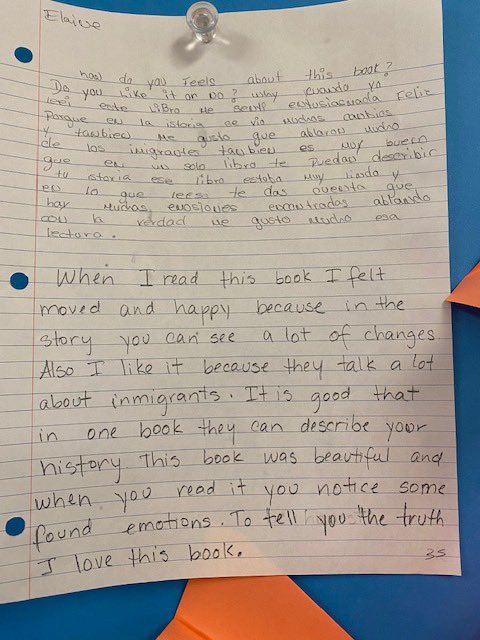 Elaine
how do you Feels about this book?
Do you like it or no? why Cuando yo
leei este libro me senti entusiasmada Feliz
Porque en la istoria se vio muchos cambios
y tambien me gusto que ablaron mucho
de los imigrantes tambien es muy bueno
que en un solo libro te puedan describir
tu storia ese libro estoba muy lindo y
en lo que lees te das cuenta que
hay muchas emosiones encontradas ablando
con la verdad me gusto mucho esa
lectora.
When I read this book I felt
moved and happy because in the
story you can see a lot of changes.
Also I like it because they talk a lot
about inmigrants. It is good that
in one book they can describe your
history. This book was beautiful and
when you read it you notice some
found emotions. To tell you the truth
I love this book.
35